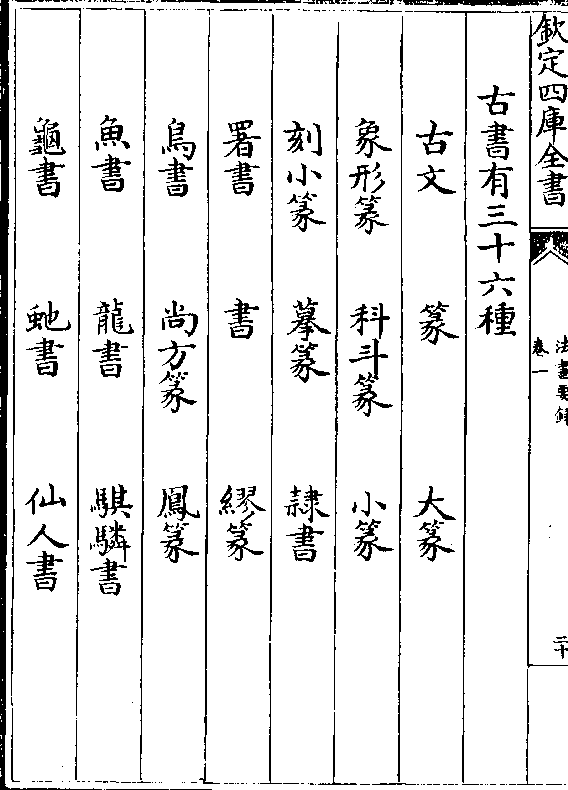 欽定四庫全書
法書要録
卷一
二十
古書有三十六種
古文 篆 大篆
象形篆 科斗篆 小篆
刻小篆 摹篆 隷書
署書 書 繆篆
鳥書 尚方篆 鳳篆
魚書 龍書 騏驎書
龜書 虵書 仙人書